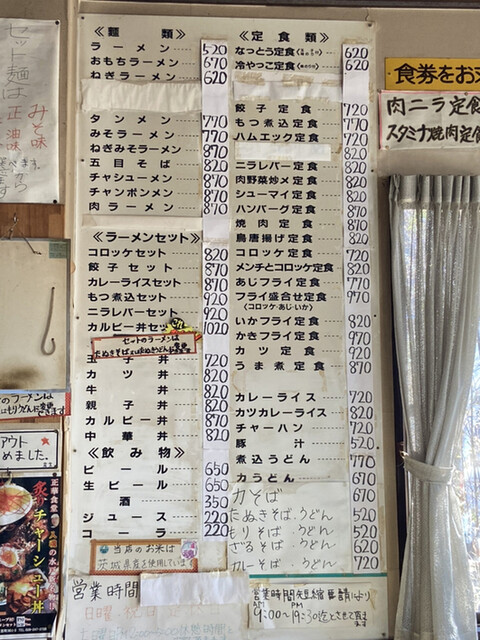 《麺類》
ラーメン 520
おもちラーメン 670
ねぎラーメン 620
タンメン 770
みそラーメン 770
ねぎみそラーメン 870
五目そば 820
チャシューメン 870
チャンポンメン 870
肉ラーメン 870
《ラーメンセット》
コロッケセット 820
餃子セット 870
カレーライスセット 870
もつ煮込セット 920
ニラレバーセット 920
カルビー丼セット 1020
セットのラーメンは
玉子丼 720
カツ丼 820
牛丼 820
親子丼 820
カルビー丼 870
中華丼 820
《飲み物》
ビール 650
生ビール 650
酒 350
ジュース 220
コーラ 220
当店のお米は
茨城県産を使用しています
営業時間
《定食類》
なっとう定食 620
冷やっこ定食 620
餃子定食 720
もつ煮込定食 770
ハムエック定食 720
820
ニラレバー定食 820
肉野菜炒メ定食 820
シューマイ定食 820
ハンバーグ定食 870
焼肉定食 870
鳥唐揚げ定食 820
コロッケ定食 720
メンチとコロッケ定食 820
あじフライ定食 770
フライ盛合せ定食 970
(コロッケ・あじ・いか)
いかフライ定食 820
かきフライ定食 970
カツ定食 920
うま煮定食 870
カレーライス 720
カツカレーライス 820
チャーハン 720
豚汁 520
煮込うどん 770
力うどん 670
力そば 670
たぬきそば・うどん 520
もりそば・うどん 520
ざるそば・うどん 620
カレーそば・うどん 720
営業時間短縮要請により
AM PM
9:00〜9:30迄とさせて頂きます
食券をお
肉ニラ定食
スタミナ焼肉定食
セット麺は
みそ味
正油味
アウト
めました。
正華食堂
炙りチャーシュー丼